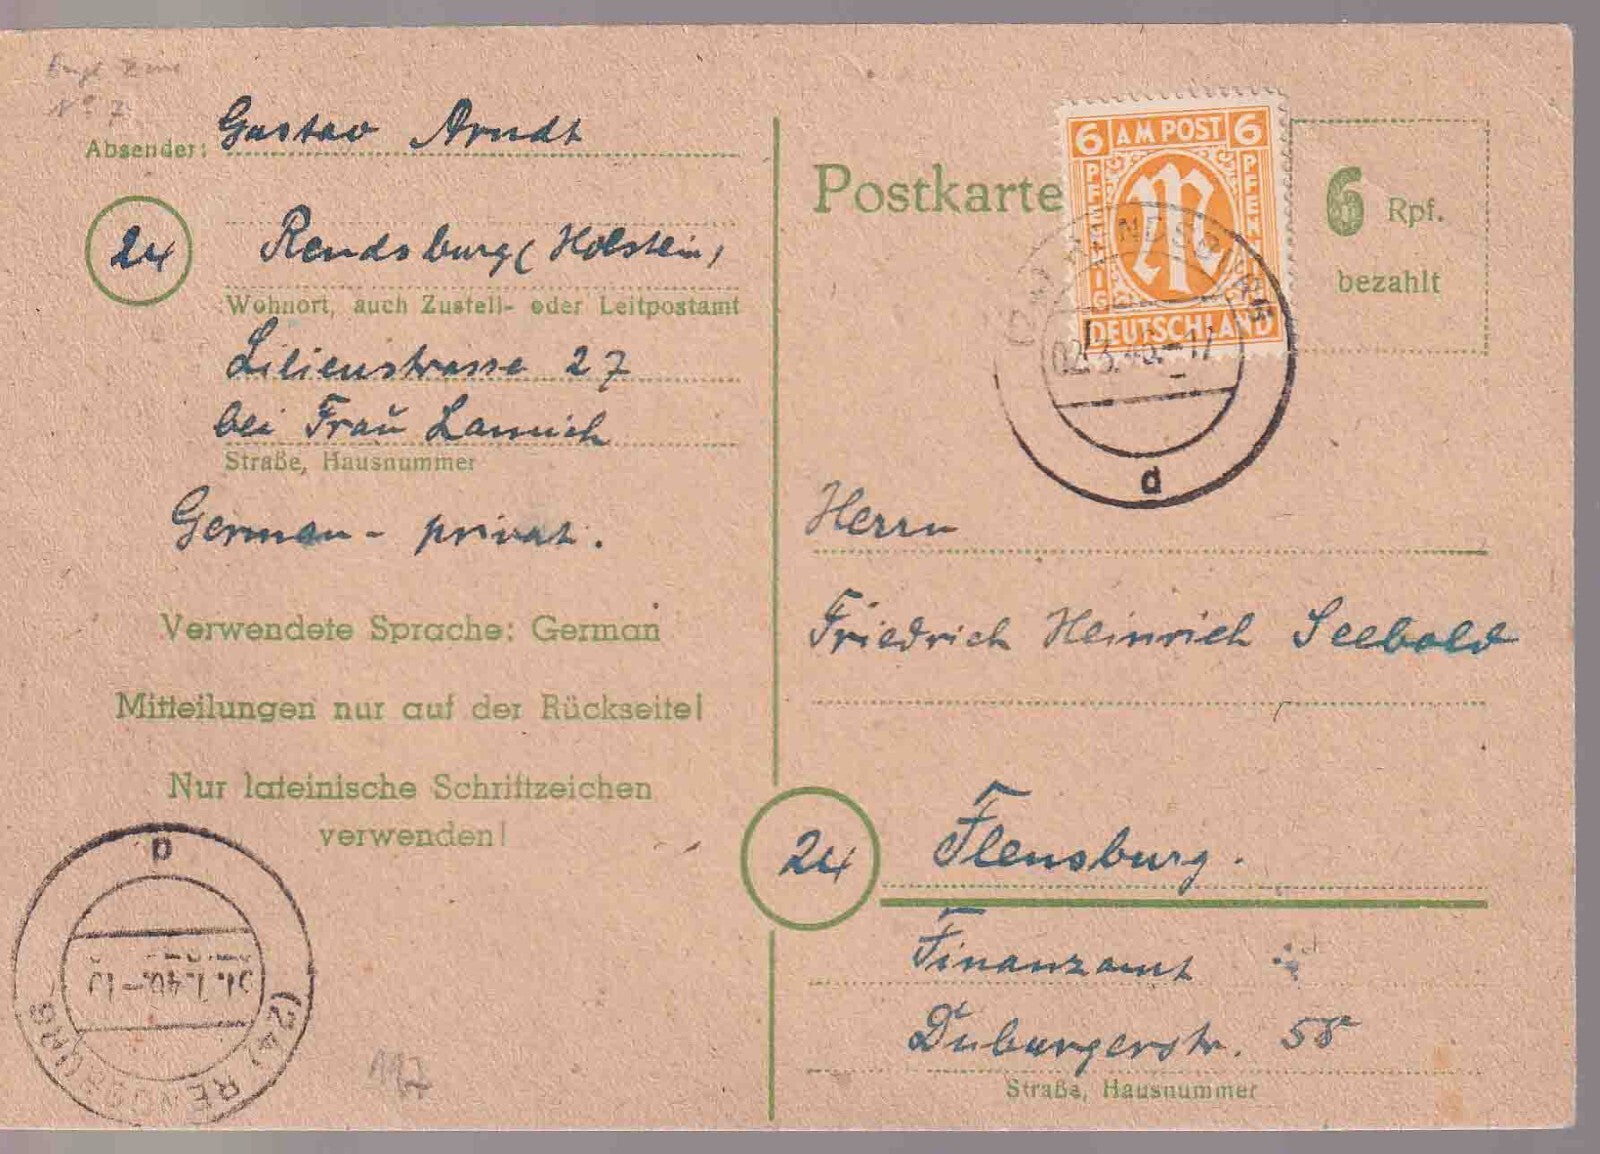 Absender: Gustav Arndt
24 Rendsburg (Holstein)
Wohnort, auch Zustell- oder Leitpostamt
Lilienstrasse 27
bei Frau
Straße, Hausnummer
German - privat.
Verwendete Sprache: German
Mitteilungen nur auf der Rückseite!
Nur lateinische Schriftzeichen
verwenden!
b
(24) RENDSBURG
Postkarte
6 AM POST 6
PFENNIG
PFENNIG
M
DEUTSCHLAND
a
6 Rpf.
bezahlt
Herrn
Friedrich Heinrich Seebold
24 Flensburg.
Finanzamt
Duburgerstr. 58
Straße, Hausnummer